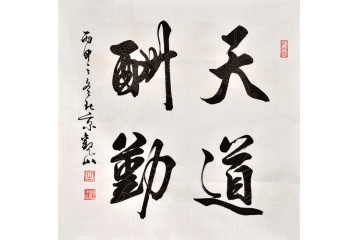 天道
酬勤
丙申之冬北京觀山